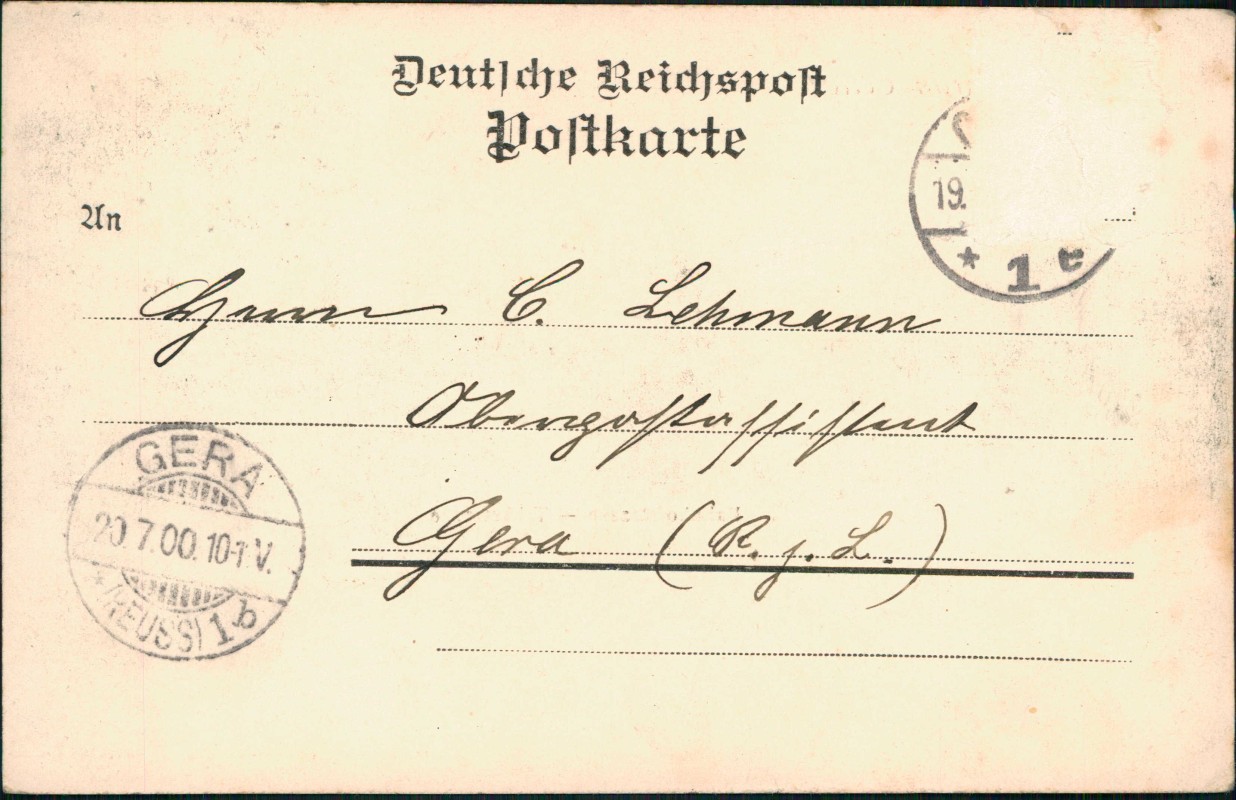 Deutsche Reichspost
Postkarte
19.
* 1 e
An
Herrn C. Lehmann
Oberpostassistent
Gera (R. j. L.)
GERA
20.7.00.10-11V.
* (REUSS) 1b